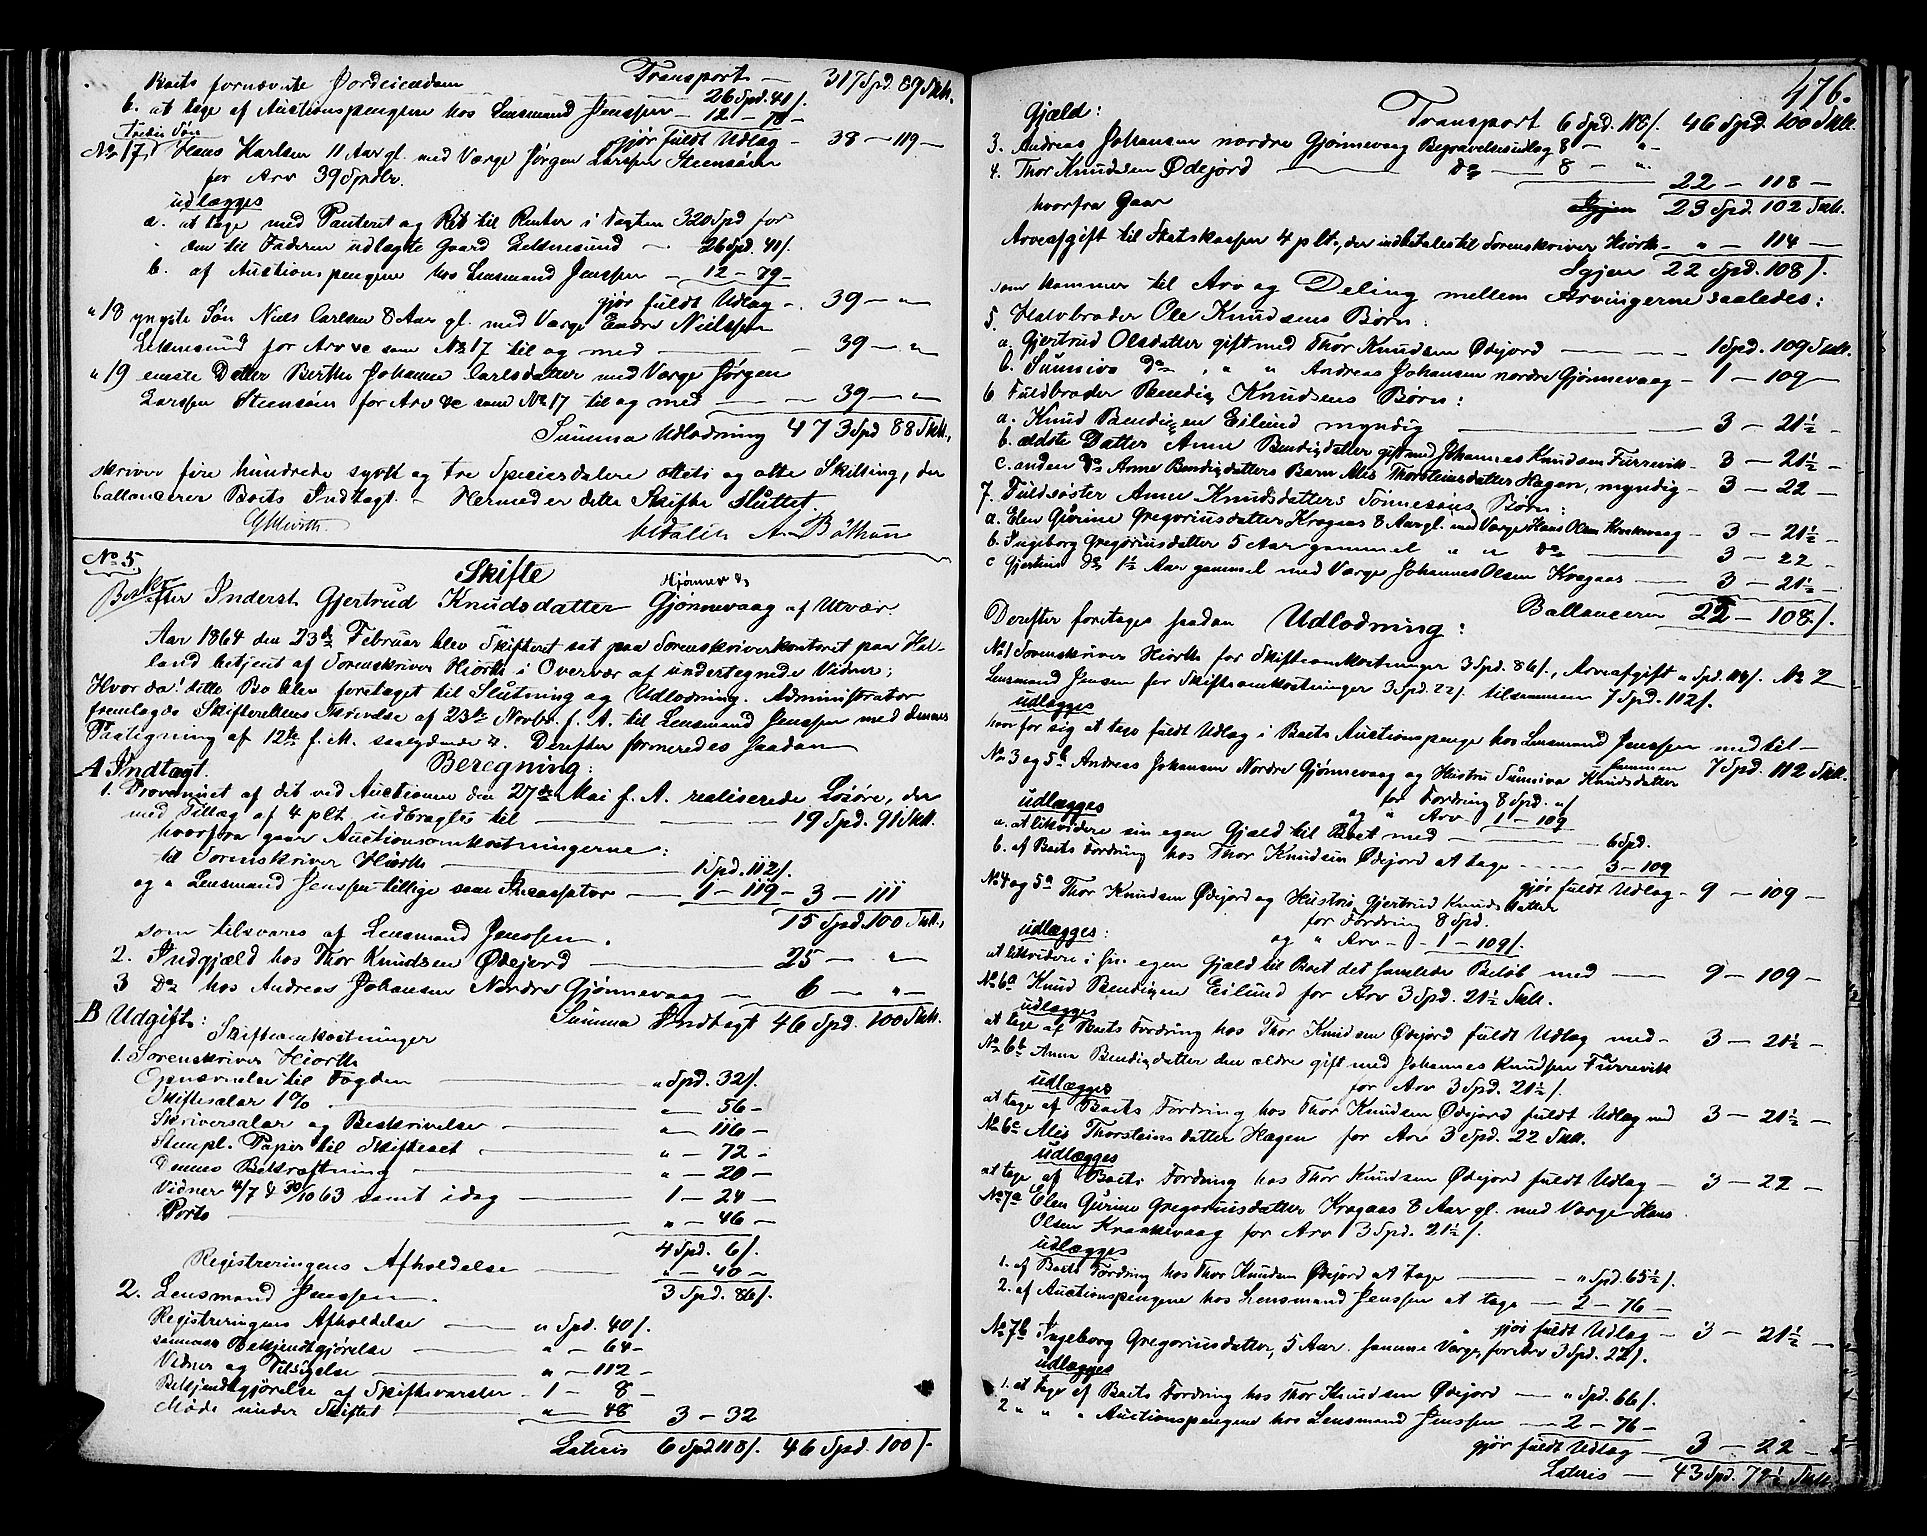 Transport — 317 Spd. 89 Skk.
Boets fornævnte Jordeiendom 26 Spd. 41 ß.
b. at tage af Auctionspengene hos Lensmand Jenssen — 12 — 78 —
gjør fuldt Udlag — 38 — 119 —
Tredie Søn
No 17, Hans Karlsen 11 Aar gl. med Værge Jørgen Larssen Steensøen
for Arv 39 Spdlr.
udlægges
a. at tage med Panteret og Ret til Renter i Vagten 320 Spd for
den til Faderen udlagte Gaard — 26 Spd. 41 ß.
b. af Auctionspengene hos Lensmand Jenssen — 12 — 79 —
gjør fuldt Udlag — 39 — " —
" 18 yngste Søn Niels Carlsen 8 Aar gl. med Værge Endre Nielssen
for Arv &c som No 17 til og med — 39 — " —
" 19 eneste Datter Berthe Johanne Carlsdatter med Værge Jørgen
Larssen Steensøen for Arv &c som No 17 til og med — 39 — " —
Summa Udlodning 473 Spd 88 Skk.,
skriver fire hundrede sytti og tre Speciesdalere otteti og otte Skilling, der
ballancerer Boets Indtægt. — Hermed er dette Skifte Sluttet.
GHiorth
No 5
Skifte
Hjønnev &
efter Inderst Gjertrud Knudsdatter Gjønnevaag af Utvær.
Aar 1864 den 23de Februar blev Skifteret sat paa Sorenskriverkontoret paa Hal-
land betjent af Sorenskriver Hiorth i Overvær af undertegnede Vidner;
Hvor da! dette Bo blev foretaget til Slutning og Udlodning. Administrator
fremlagde Skifterettens Skrivelse af 23de Novbr. f. A. til Lensmand Jenssen med dennes
Paategning af 12te f. M. saalydende &. Derefter formeredes saadan
Beregning:
A Indtægt.
1. Provenuet af dit ved Auctionen den 27de Mai f. A. realiserede Løsøre, der
med Tillæg af 4 pCt. udbragtes til — 19 Spd. 91 Skk.
hvorfra gaar Auctionsomkostningerne:
til Sorenskriver Hiorth — 1 Spd. 112 ß.
og " Lensmand Jenssen tillige som Incassator — 1 — 119 — 3 — 111
15 Spd. 100 Skk.,
som tilsvares af Lensmand Jenssen.
2. Indgjæld hos Thor Knudsen Ødejord — 25 — " —
3 Do hos Andreas Johansen Nordre Gjønnevaag — 6 — " —
Summa Indtægt 46 Spd. 100 Skk.
B Udgift:
Skifteomkostninger
1. Sorenskriver Hiorth
Opnævnelse til Fogden — " Spd. 32 ß.
Skiftesalær 1% — " — 56 —
Skriversalær og Beskrivelse — " — 116 —
Stempl. Papir til Skifteset — " — 72 —
Dennes Bekræftning — " — 20 —
Vidner 4/7 & 30/10 63 samt idag — 1 — 24 —
Porto — " — 46 —
4 Spd. 6 ß.
Registreringens Afholdelse — " — 40 —
3 Spd. 86 ß.
2. Lensmand Jenssen.
Registreringens Afholdelse — " Spd. 40 ß.
sammes Bekjendtgjørelse — " — 64 —
Vidner og Tilsigelse — " — 112 —
Bekjendtgjørelse af Skiftevarsler — 1 — 8 —
Møde under Skiftet — " — 48 3 — 32
Lateris 6 Spd 118 ß. 46 Spd. 100 ß
476.
Gjæld: Transport 6 Spd. 118 ß. 46 Spd. 100 Skk.
3. Andreas Johansen nordre Gjønnevaag Begravelsesudlæg 8 — " —
4. Thor Knudsen Ødejord — do — 8 — " —
22 — 118 —
hvorfra Gaar Igjen 23 Spd. 102 Skk.
Arveafgift til Statskassen 4 pCt., der indbetales til Sorenskriver Hiorth — " — 114 —
Igjen 22 Spd. 108 ß.
som kommer til Arv og Deling mellem Arvingerne saaledes:
5. Halvbroder Ole Knudsens Børn:
a. Gjertrud Olsdatter gift med Thor Knudsen Ødejord — 1 Spd. 109 Skk.
b. Sunniva do " " Andreas Johansen nordre Gjønnevaag — 1 — 109 —
6 Fuldbroder Bendix Knudsens Børn:
a. Knud Bendixen Eilund myndig — 3 — 21½ —
b. ældste Datter Anne Bendixdatter gift med Johannes Knudsen Furrevik — 3 — 21½ —
c. anden do Anne Bendixdatters Barn Alis Thorsteinsdatter Hagen, myndig — 3 — 22 —
7. Fuldsøster Anne Knudsdatters Tonnesøns Børn:
a. Elen Gurine Gregoriusdatter Kragaas 8 Aar gl. med Værge Hans Olsen Kraakevaag — 3 — 21½ —
b. Ingeborg Gregoriusdatter 5 Aar gammel " " do — 3 — 22 —
c Gjertine do 1½ Aar gammel med Værge Johannes Olsen Kragaas — 3 — 21½ —
Ballancerer 22 — 108 ß.
Derefter foretages saadan Udlodning:
No 1 Sorenskriver Hiorth for Skifteomkostninger 3 Spd. 86 ß., Arveafgift " Spd. 114 ß. No 2
Lensmand Jensen for Skifteomkostninger 3 Spd. 22 ß. tilsammen 7 Spd. 112 ß.
udlægges
hver for sig at tage fuldt Udlæg i Boets Auctionspenge hos Lensmand Jenssen med til-
sammen 7 Spd. 112 Skk.
No 3 og 5b Andreas Johansen Nordre Gjønnevaag og Hustru Sunniva Knudsdatter
for Fordring 8 Spd. "ß
udlægges og " Arv — 1 — 109
a. at likvidere sin egen Gjæld til Boet med — 6 Spd.
b. af Boets Fordring hos Thor Knudsen Ødejord at tage — 3 — 109
gjør fuldt Udlæg — 9 — 109 —
No 4 og 5a Thor Knudsen Ødejord og Hustru Gjertrud Knudsdatter
for Fordring 8 Spd.
udlægges: og " Arv — 1 — 109 ß.
at likvidere i sin egen Gjæld til Boet det samlede Beløb med — 9 — 109 —
No 6a Knud Bendixen Eilund for Arv 3 Spd. 21½ Skk.
udlægges
at tage af Boets Fordring hos Thor Knudsen Ødejord fuldt Udlæg med — 3 — 21½ —
No 6b Anne Bendixdatter den ældre gift med Johannes Knudsen Furrevik
udlægges for Arv 3 Spd. 21½ ß.
at tage af Boets Fordring hos Thor Knudsen Ødejord fuldt Udlæg med 3 — 21½ —
No 6c Alis Thorsteinsdatter Hagen for Arv 3 Spd. 22 Skk.
udlægges
at tage af Boets Fordring hos Thor Knudsen Ødejord fuldt Udlæg — 3 — 22 —
No 7a Elen Gurine Gregoriusdatter Kragaas 8 Aar gl. med Værge Hans
Olsen Kraakevaag for Arv 3 Spd. 21½ ß.
udlægges
1. af Boets Fordring hos Thor Knudsen Ødejord at tage — " Spd. 65½ ß.
2. af Auctionspengene hos Lensmand Jenssen at tage — 2 — 76 —
gjør fuldt Udlæg — 3 — 21½ —
No 7b Ingeborg Gregoriusdatter, 5 Aar. samme Værge, for Arv 3 Spd. 22 ß.
udlægges
1. at tage af Boets Fordring hos Thor Knudsen Ødejord — " Spd. 66 ß.
2 " " " Auctionspengene hos Lensmand Jenssen — 2 — 76 —
gjør fuldt Udlæg — 3 — 22 —
Lateris — 43 Spd. 72½ Skk.